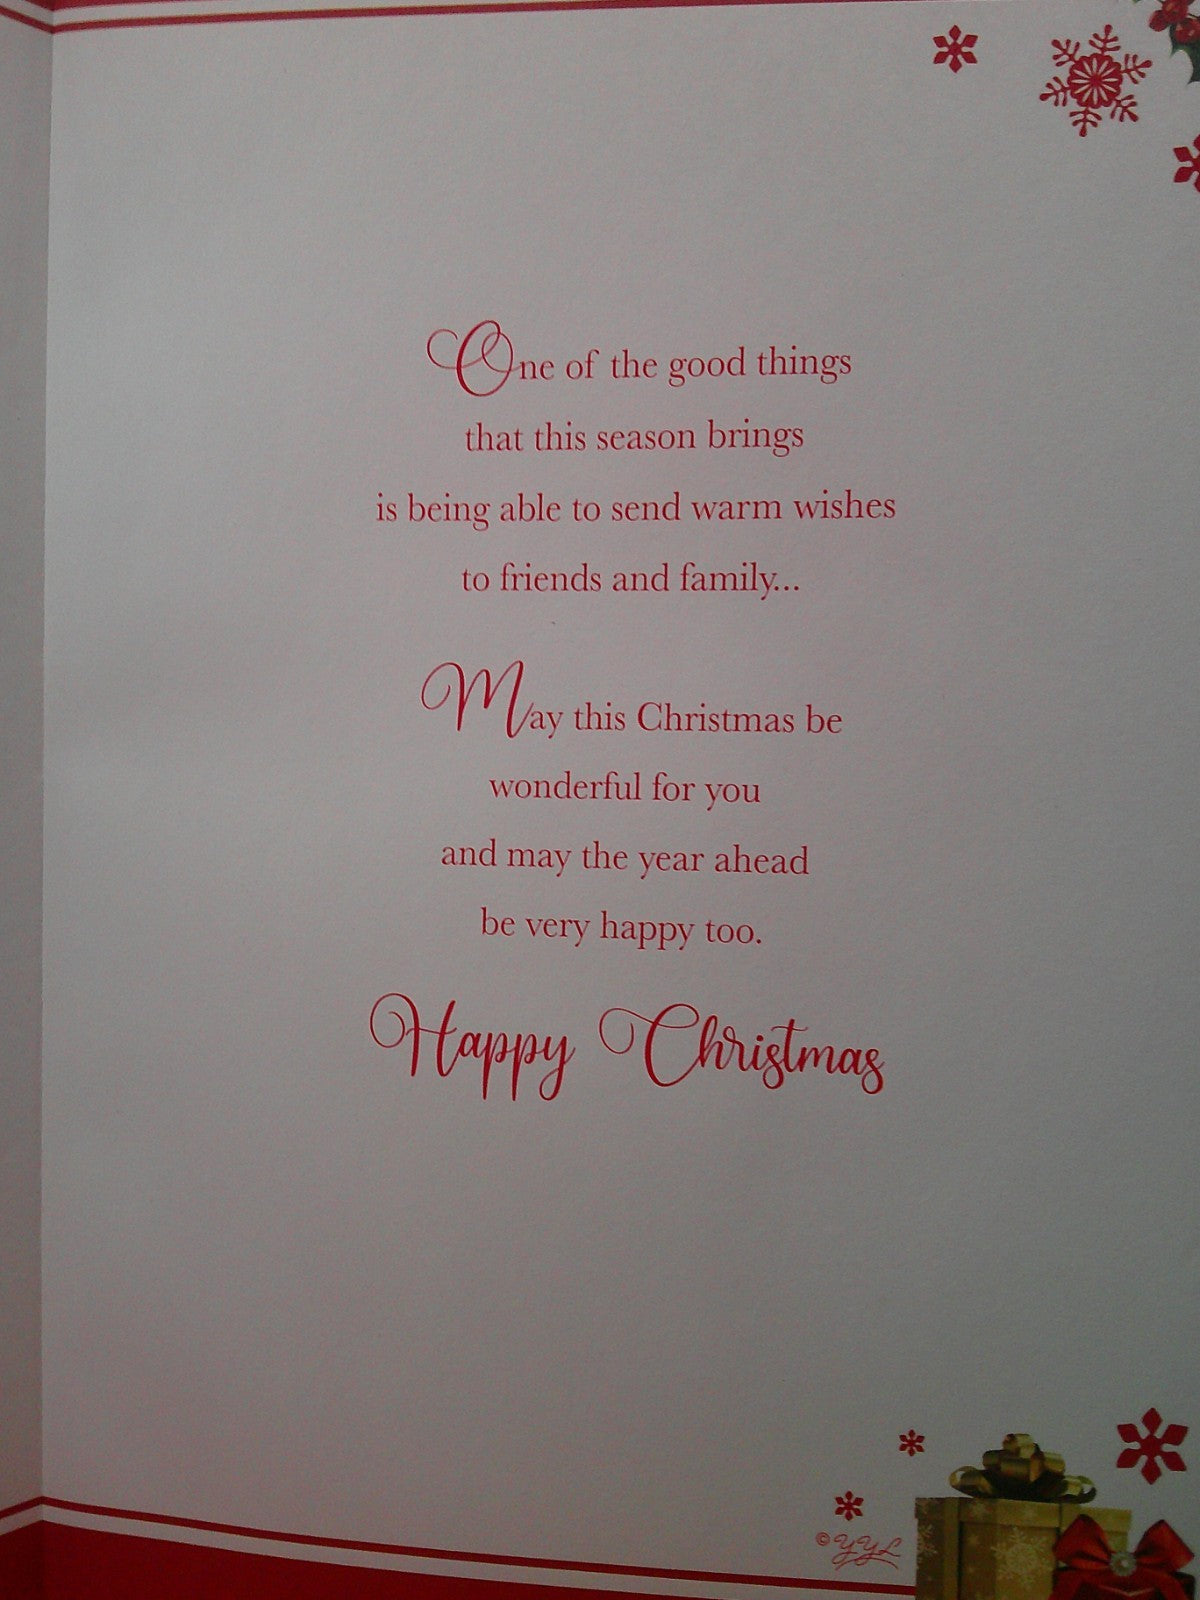 One of the good things
that this season brings
is being able to send warm wishes
to friends and family...
May this Christmas be
wonderful for you
and may the year ahead
be very happy too.
Happy Christmas
©YYL